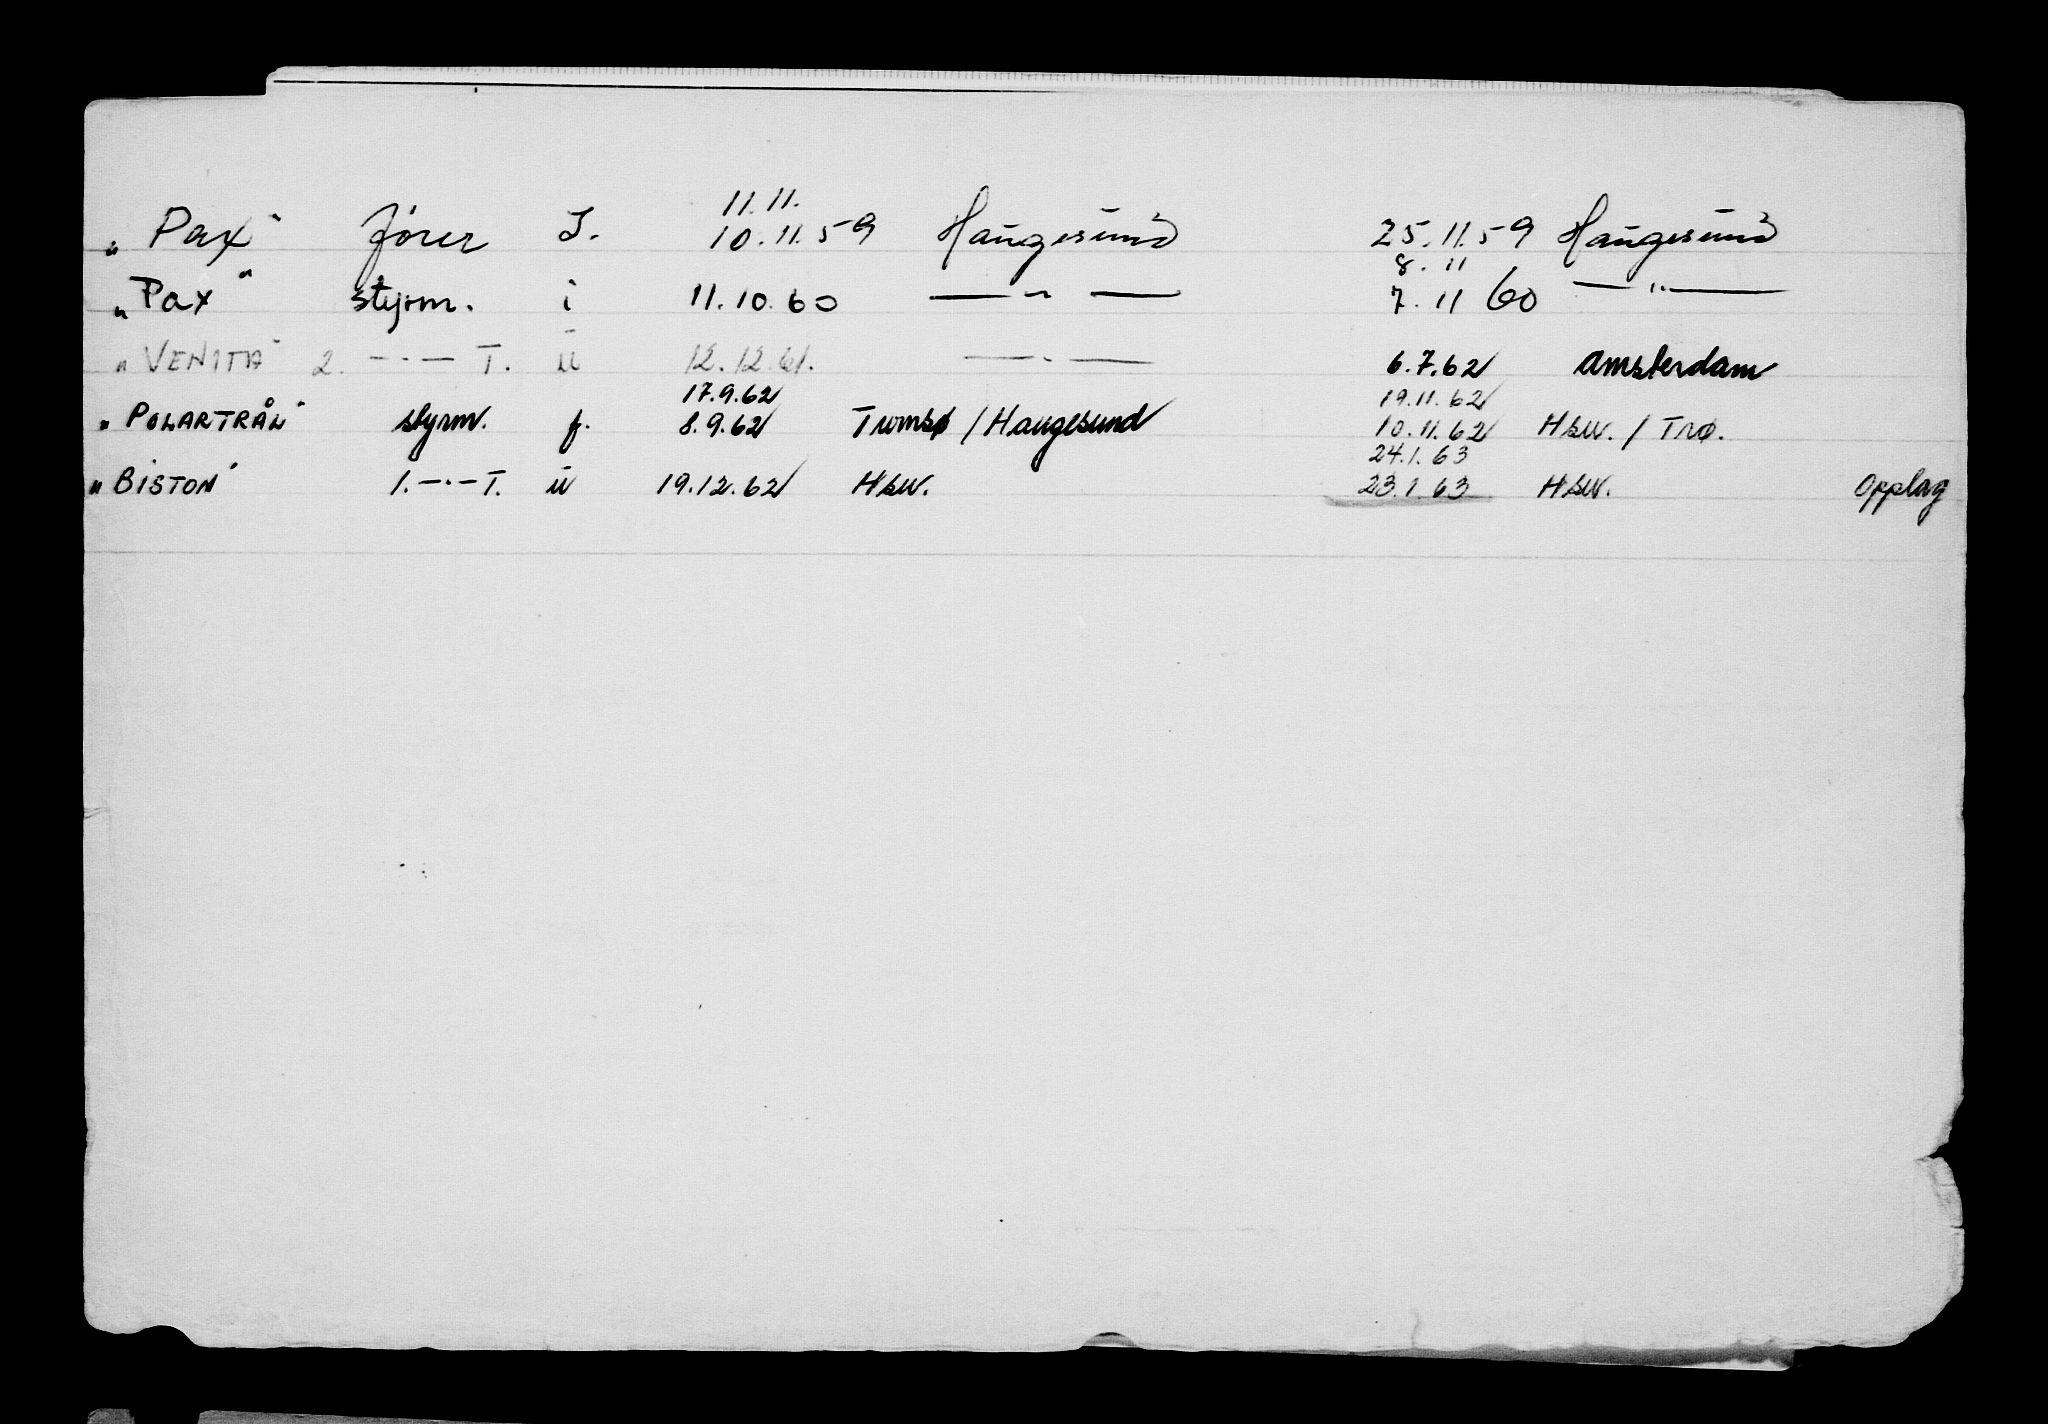 11.11.
"Pax" fører I. 10.11.59 Haugesund 25.11.59 Haugesund
8.11
"Pax" styrm. i 11.10.60 —"— 7.11 60 —"—
"VENITA" 2. —"— T. u 12.12.61. —"— 6.7.62 Amsterdam
17.9.62 19.11.62
"POLARTRÅL" styrm. f. 8.9.62 Tromsø / Haugesund 10.11.62 Hsu. / Trø.
24.1.63
"BISTON" 1. —"— T. u 19.12.62 Hsu. 23.1.63 Hsu. Opplag